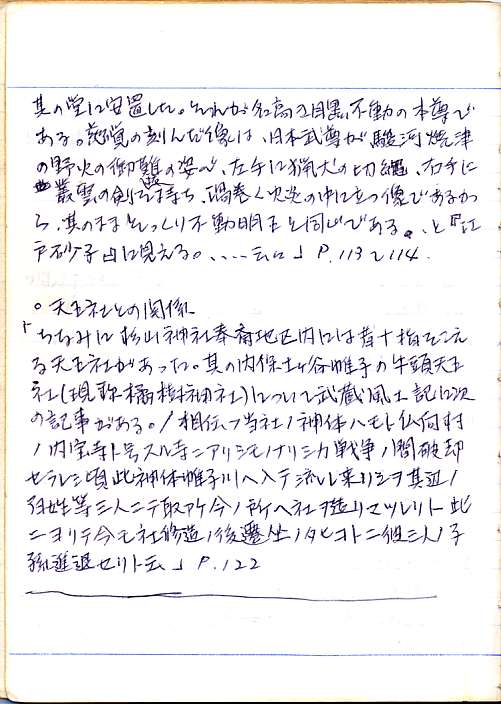 其の堂に安置した。それが名高い目黒不動の本尊で
ある。慈覚の刻んだ像は、日本武尊が駿河焼津
の野火の御難の姿で、左手に猟犬の切繩、右手に
叢雲の剣を持ち、渦巻く火炎の中に立つ像であるか
ら、其のままそっくり不動明王と同じである。と『江
戸砂子』に見える。、、、、云々」P.113~114.
○天王社との関係
「ちなみに杉山神社奉斎地区内には昔十指をこえ
る天王社があった。其の内保土ヶ谷帷子の牛頭天王
社(現称橘樹神社)について武蔵風土記に次
の記事がある。/相伝フ当社ノ神体ハモト仏向村
ノ内宝寺ト号スル寺ニアリシモノナリシカ戦争ノ間破却
セラレシ頃此神体帷子川ヘ入テ流レ来リシヲ其辺ノ
百姓等三人ニテ取アケ今ノ所ヘ社ヲ造リマツレリト此
ニヨリテ今モ社修造ノ後遷坐ノタヒコトニ彼三人ノ子
孫進退セリト云」P.122